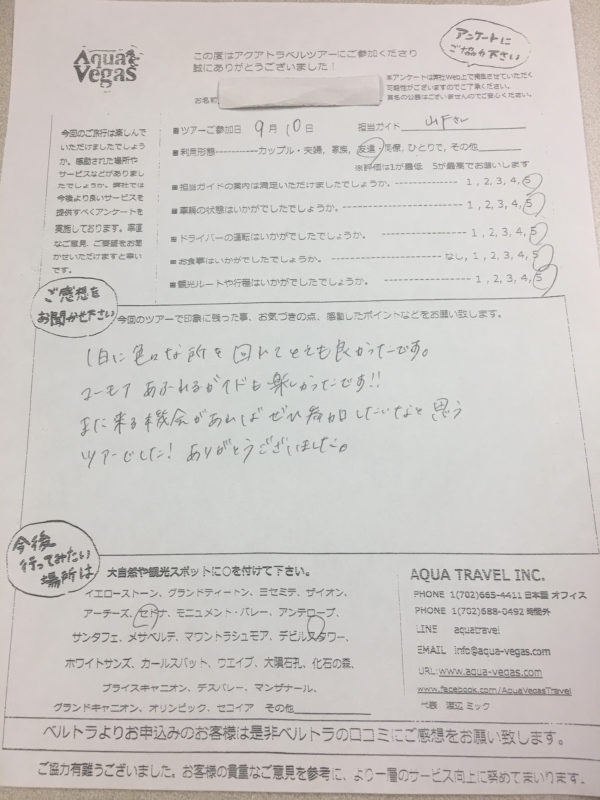 Aqua Vegas
この度はアクアトラベルツアーにご参加くださり
誠にありがとうございました！
アンケートに
ご協力下さい
お名前
本アンケートは弊社Web上で掲載させていただく
可能性がございますのでご了承ください。
実名の公表はございませんのでご安心ください。
今回のご旅行は楽しんで
いただけましたでしょう
か。感動された場所や
サービスなどがありまし
たでしょうか。弊社では
今後より良いサービスを
提供すべくアンケートを
実施しております。率直
なご意見、ご要望をお聞
かせいただけますと幸い
です。
■ツアーご参加日 9月10日 担当ガイド 山下さん
■利用形態------------カップル・夫婦、家族、友達、同僚、ひとりで、その他
※評価は1が最低 5が最高でお願いします
■担当ガイドの案内は満足いただけましたでしょうか。------------ 1, 2, 3, 4, 5
■車輌の状態はいかがでしたでしょうか。------------ 1, 2, 3, 4, 5
■ドライバーの運転はいかがでしたでしょうか。------------ 1, 2, 3, 4, 5
■お食事はいかがでしたでしょうか。------------ なし, 1, 2, 3, 4, 5
■観光ルートや行程はいかがでしたでしょうか。------------ 1, 2, 3, 4, 5
ご感想を
お聞かせ下さい
今回のツアーで印象に残った事、お気づきの点、感動したポイントなどをお願い致します。
1日に色々な所を回れてとても良かったです。
ユーモア あふれるガイドも楽しかったです!!
また来る機会があればぜひ参加したいなと思う
ツアーでした! ありがとうございました。
今後
行ってみたい
場所は
大自然や観光スポットに○を付けて下さい。
イエローストーン、グランドティートン、ヨセミテ、ザイオン、
アーチーズ、セドナ、モニュメント・バレー、アンテロープ、
サンタフェ、メサベルデ、マウントラシュモア、デビルズタワー、
ホワイトサンズ、カールスバット、ウエイブ、大隕石孔、化石の森、
ブライスキャニオン、デスバレー、マンザナール、
グランドキャニオン、オリンピック、セコイア その他
AQUA TRAVEL INC.
PHONE 1(702)665-4411 日本語 オフィス
PHONE 1(702)688-0492 時間外
LINE aquatravel
EMAIL info@aqua-vegas.com
URL: www.aqua-vegas.com
www.facebook.com/AquaVegasTravel
代表 渡辺 ミック
ベルトラよりお申込みのお客様は是非ベルトラの口コミにご感想をお願い致します。
ご協力有難うございました。お客様の貴重なご意見を参考に、より一層のサービス向上に努めてまいります。